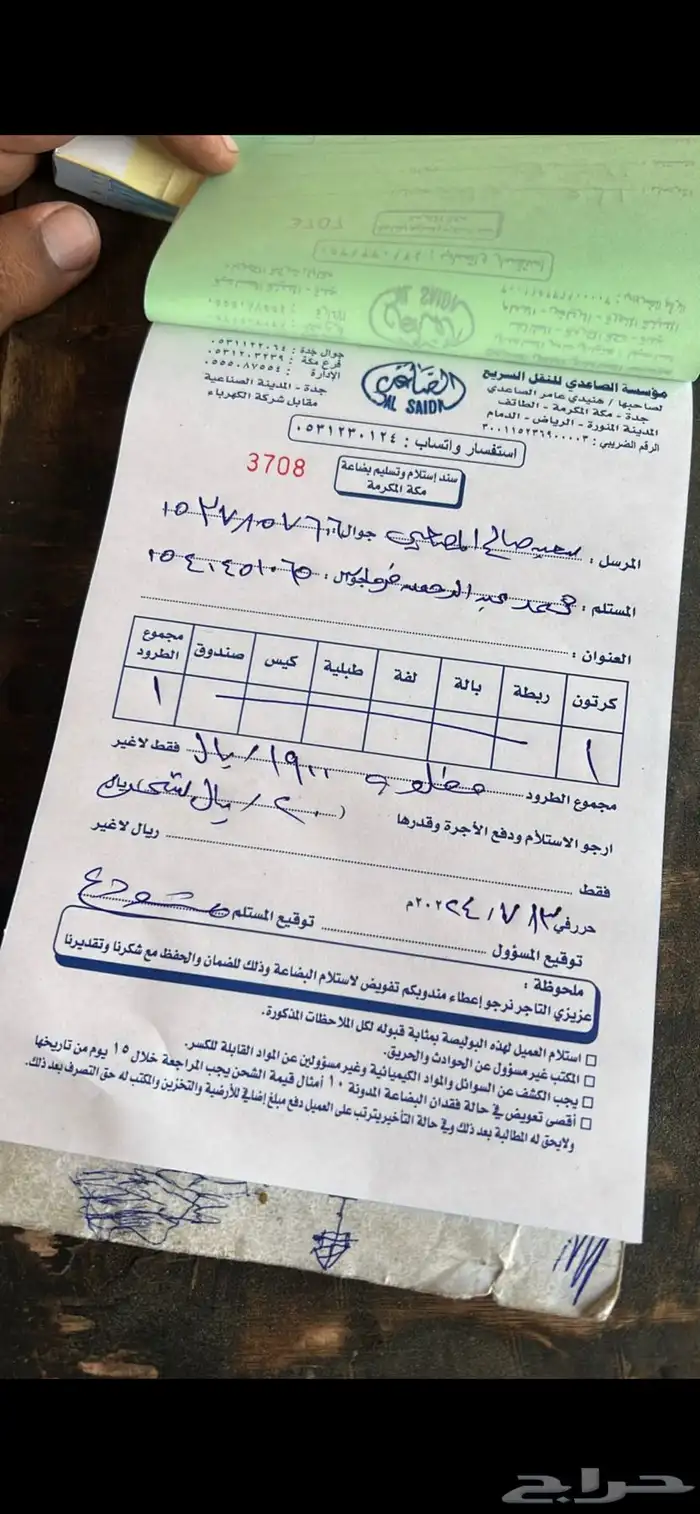 مؤسسة الصاعدي للنقل السريع
لصاحبها / هنيدي عامر الصاعدي
جدة - مكة المكرمة - الطائف
المدينة المنورة - الرياض - الدمام
الرقم الضريبي : ٣٠٠١١٥٢٣٦٩٠٠٠٠٣
الصاعدي
AL SAIDI
جوال جدة : ٠٥٣١١٢٢٠٦٤
فرع مكة : ٠٥٣١٢٠٣٢٣٩
الإدارة : ٠٥٥٥٠٨٧٥٥٤
جدة - المدينة الصناعية
مقابل شركة الكهرباء
استفسار واتساب : ٠٥٣١٢٣٠١٢٤
سند إستلام وتسليم بضاعة
مكة المكرمة
3708
المرسل : سعيد صالح جوال :
المستلم : محمد عبد الرحمن جوال :
العنوان :
كرتون ربطة بالة لفة طبلية كيس صندوق مجموع الطرود
١ ١
مجموع الطرود ١٩٠٠ / ريال فقط لاغير
ارجو الاستلام ودفع الأجرة وقدرها ( ٢٠٠ / ريال
فقط ريال لاغير
حرر في ١٣ / ٧ / ٢٠٢٤م
توقيع المسؤول توقيع المستلم
ملحوظة :
عزيزي التاجر نرجو إعطاء مندوبكم تفويض لاستلام البضاعة وذلك للضمان والحفظ مع شكرنا وتقديرنا
استلام العميل لهذه البوليصة بمثابة قبوله لكل الملاحظات المذكورة.
المكتب غير مسؤول عن الحوادث والحريق.
يجب الكشف عن السوائل والمواد الكيميائية وغير مسؤولين عن المواد القابلة للكسر.
أقصى تعويض في حالة فقدان البضاعة المدونة ١٠ أمثال قيمة الشحن يجب المراجعة خلال ١٥ يوم من تاريخها
ولايحق له المطالبة بعد ذلك وفي حالة التأخير يترتب على العميل دفع مبلغ إضافي للأرضية والتخزين والمكتب له حق التصرف بعد ذلك.
حراج